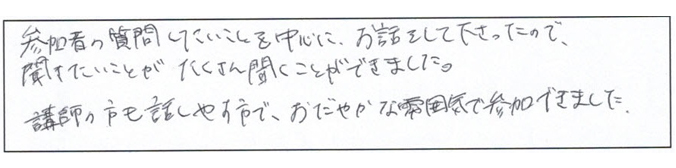 参加者の質問したいことを中心に、お話をして下さったので、
聞きたいことが たくさん聞くことができました。
講師の方も話しやす方で、おだやかな雰囲気で参加できました.